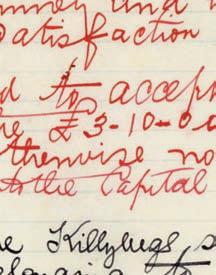 and
satisfaction
to accept
£3-10-0
otherwise no
to the Capital
Killybegs, s
to